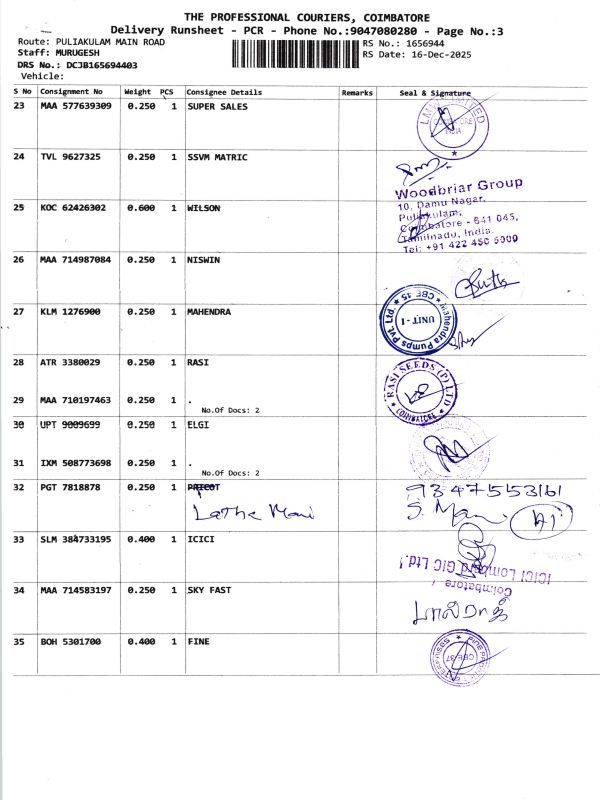 THE PROFESSIONAL COURIERS, COIMBATORE
Delivery Runsheet - PCR - Phone No.:9047080280 - Page No.:3
Route: PULIAKULAM MAIN ROAD RS No.: 1656944
Staff: MURUGESH RS Date: 16-Dec-2025
DRS No.: DCJB165694403
Vehicle:
S No Consignment No Weight PCS Consignee Details Remarks Seal & Signature
23 MAA 577639309 0.250 1 SUPER SALES
LMW LIMITED
COIMBATORE
INDIA
24 TVL 9627325 0.250 1 SSVM MATRIC
Woodbriar Group
10, Damu Nagar,
Puliakulam,
Coimbatore - 641 045,
Tamilnadu, India.
Tel: +91 422 450 5000
25 KOC 62426302 0.600 1 WILSON
26 MAA 714987084 0.250 1 NISWIN
27 KLM 1276900 0.250 1 MAHENDRA
Mahendra Pumps Pvt. Ltd.
UNIT-I
CBE-45
28 ATR 3380029 0.250 1 RASI
RASI SEEDS (P) LTD
COIMBATORE
29 MAA 710197463 0.250 1 .
No.Of Docs: 2
30 UPT 9009699 0.250 1 ELGI
31 IXM 508773698 0.250 1 .
No.Of Docs: 2
32 PGT 7818878 0.250 1 PRICOT
9347553161
33 SLM 384733195 0.400 1 ICICI
ICICI Lombard GIC Ltd.!
Coimbatore
34 MAA 714583197 0.250 1 SKY FAST
பால்ராஜ்
35 BOH 5301700 0.400 1 FINE
CBE-37